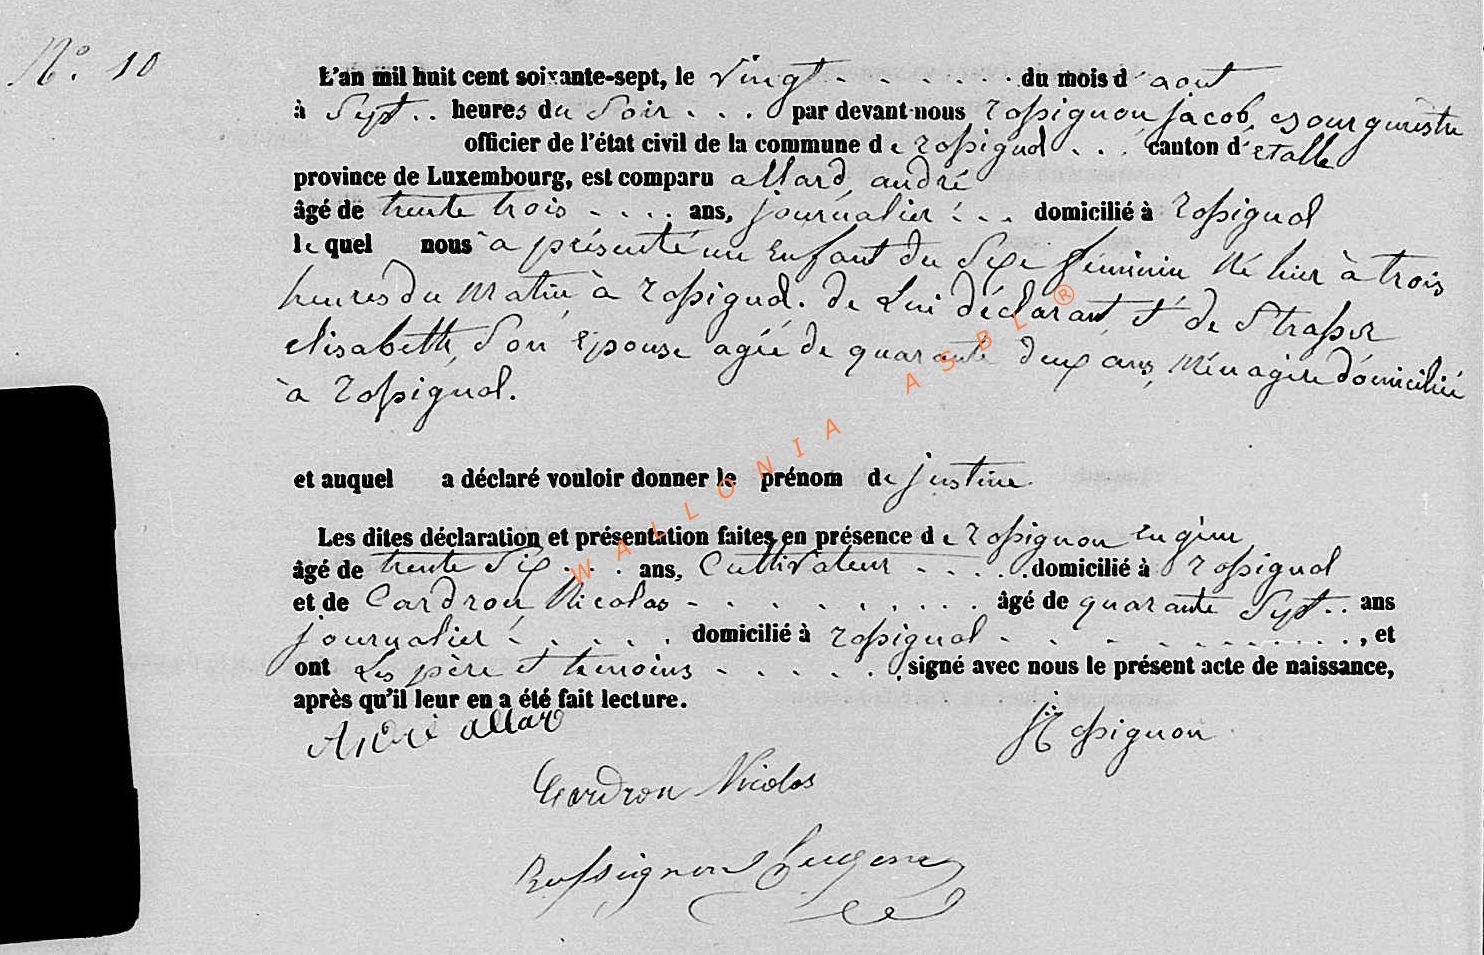 N° 10
L'an mil huit cent soixante-sept, le vingt du mois d'aout
à Sept heures du Soir par devant nous rossignon jacob, bourguemestre
officier de l'état civil de la commune de rossignol canton d'étalle
province de Luxembourg, est comparu allard, andré
âgé de trente trois ans, journalier domicilié à rossignol
lequel nous a présenté un Enfant du Sexe féminin Né hier à trois
heures du Matin à rossignol. de Lui déclarant, et de Strasser
elisabeth, Son épouse agée de quarante deux ans, Ménagère domiciliée
à rossignol.
et auquel a déclaré vouloir donner le prénom de justine
Les dites déclaration et présentation faites en présence de rossignon eugène
âgé de trente Six ans, Cultivateur domicilié à rossignol
et de Cardron Nicolas âgé de quarante Sept ans
journalier domicilié à rossignol, et
ont Les père et temoins signé avec nous le présent acte de naissance,
après qu'il leur en a été fait lecture.
André allard
J Rossignon
Cardron Nicolas
Rossignon Eugene
WALLONIA ASBL ®